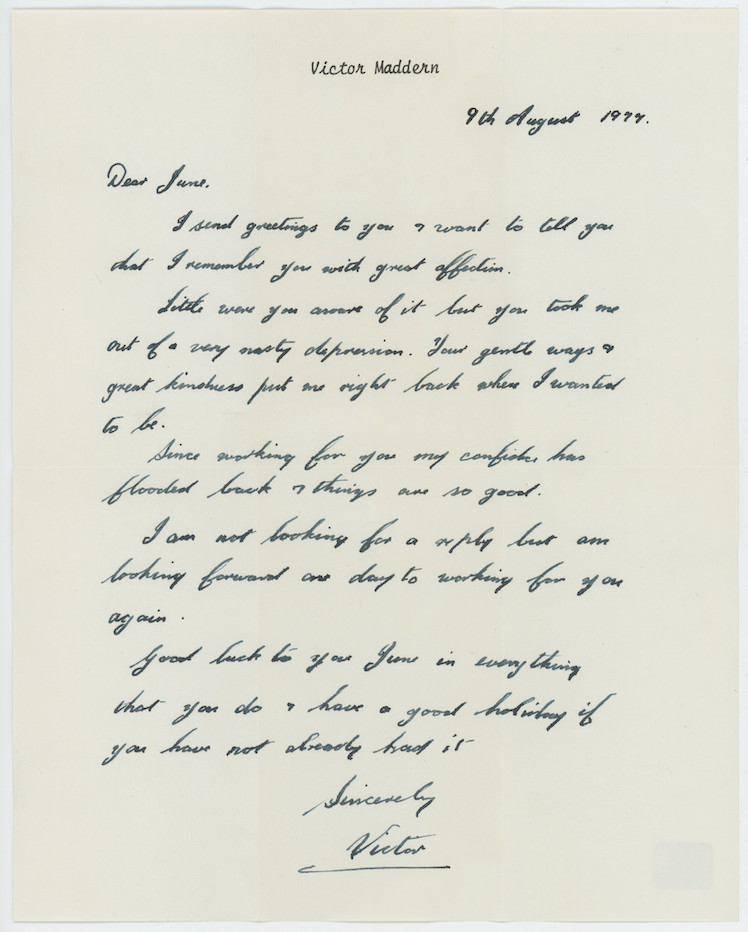 Victor Maddern
9th August 1977.
Dear June.
I send greetings to you & want to tell you
that I remember you with great affection.
Little were you aware of it but you took me
out of a very nasty depression. Your gentle ways &
great kindness put me right back where I wanted
to be.
Since working for you my confidce has
flooded back & things are so good.
I am not looking for a reply but am
looking forward one day to working for you
again.
Good luck to you June in everything
that you do & have a good holiday if
you have not already had it
Sincerely
Victor